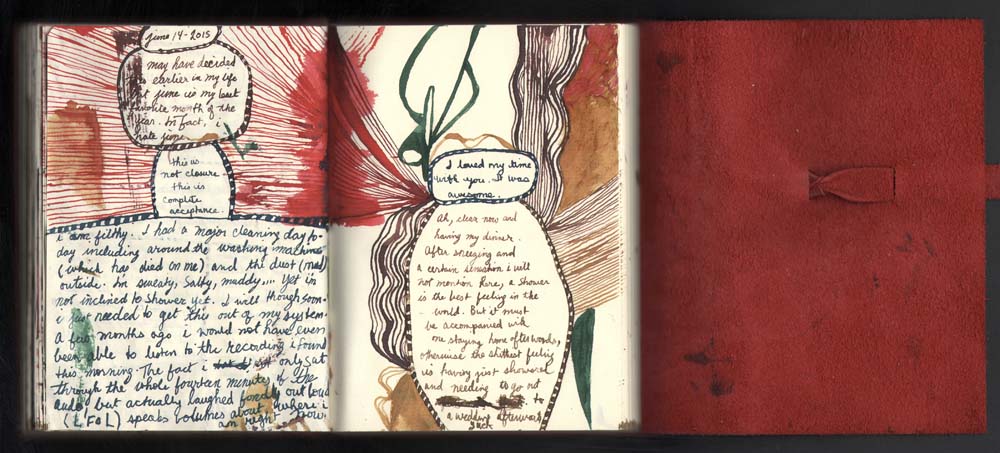 june 14 - 2015
i may have decided
this earlier in my life
but june is my best
favorite month of the
year. In fact, i
hate june.
this is
not closure.
this is
complete
acceptance.
i am filthy. I had a major cleaning day to-
day including around the washing machine
(which has died on me) and the dust (mud)
outside. I'm sweaty, salty, muddy.... Yet i'm
not inclined to shower yet. I will though soon.
i just needed to get this out of my system.
A few months ago i would not have even
been able to listen to the recording i found
this morning. The fact i not only sat
through the whole fourteen minutes of the
audio but actually laughed fondly out loud
(LFOL) speaks volumes about where i
am right now.
I loved my time
with you. It was
awesome.
Ah, clear now and
having my dinner.
After sneezing and
a certain sensation i will
not mention here, a shower
is the best feeling in the
world. But it must
be accompanied with
me staying home afterwards,
otherwise the shittest feeling
is having just showered
and needing to go out
to
a wedding afterwards
yuck